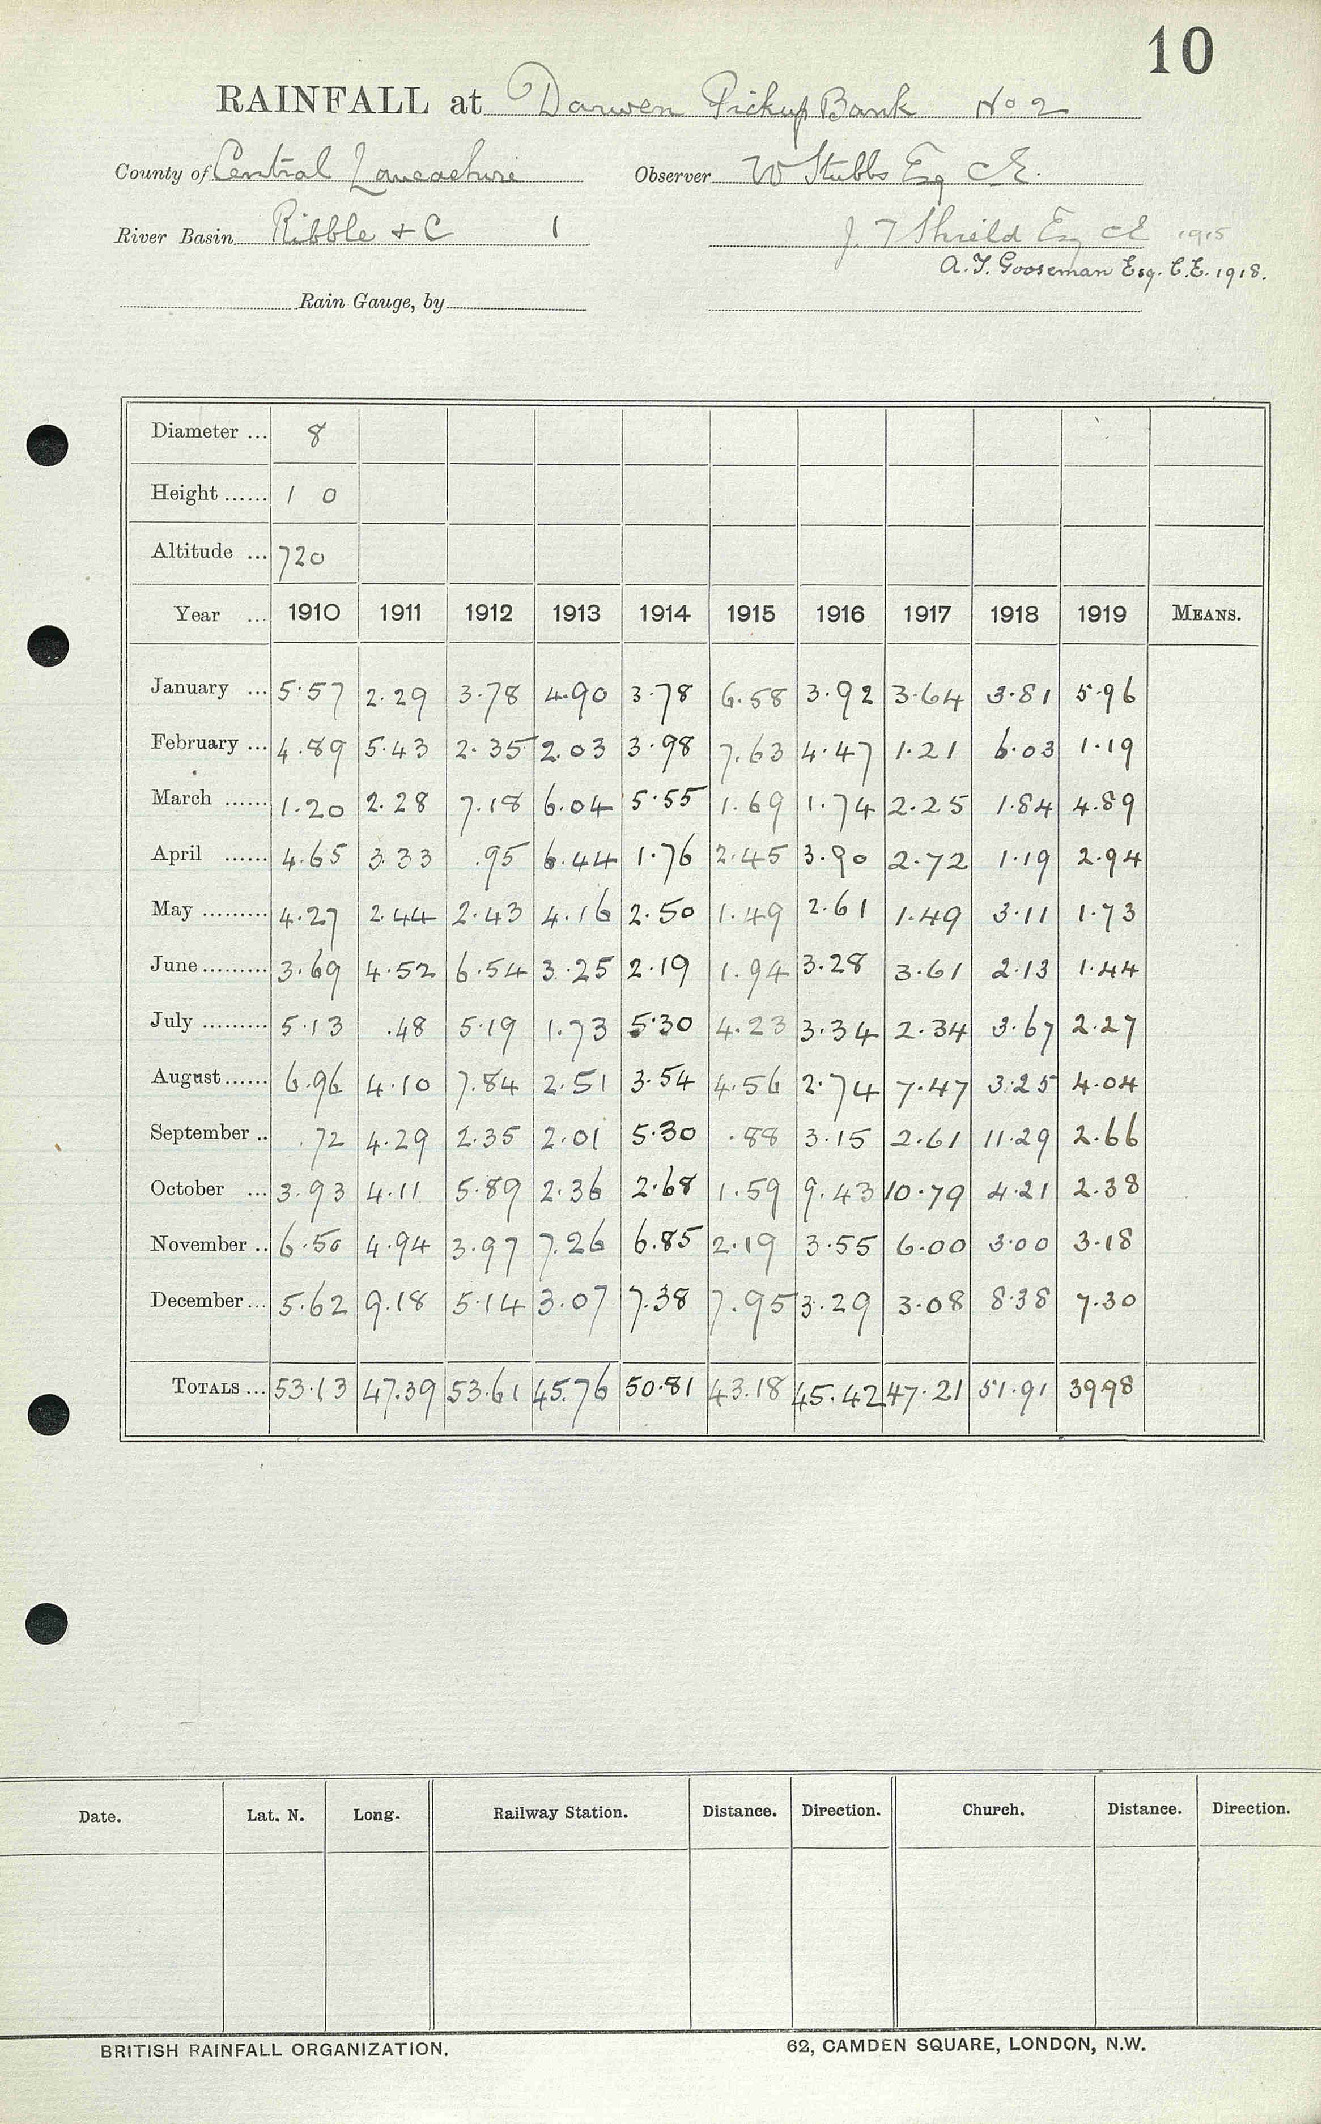 10
RAINFALL at Darwen Pickup Bank No 2
County of Central Lancashire Observer W Stubbs Esq CE.
River Basin Ribble + C 1 J. T Shield Esq CE 1915
A.T. Gooseman Esq. C.E. 1918.
Rain Gauge, by
Diameter ... 8
Height ...... 1 0
Altitude ... 720
Year ... 1910 1911 1912 1913 1914 1915 1916 1917 1918 1919 MEANS.
January ... 5.57 2.29 3.78 4.90 3.78 6.58 3.92 3.64 3.81 5.96
February ... 4.89 5.43 2.35 2.03 3.98 7.63 4.47 1.21 6.03 1.19
March ...... 1.20 2.28 7.18 6.04 5.55 1.69 1.74 2.25 1.84 4.89
April ...... 4.65 3.33 .95 6.44 1.76 2.45 3.90 2.72 1.19 2.94
May ......... 4.27 2.44 2.43 4.16 2.50 1.49 2.61 1.49 3.11 1.73
June ......... 3.69 4.52 6.54 3.25 2.19 1.94 3.28 3.61 2.13 1.44
July ......... 5.13 .48 5.19 1.73 5.30 4.23 3.34 2.34 3.67 2.27
August ...... 6.96 4.10 7.84 2.51 3.54 4.56 2.74 7.47 3.25 4.04
September .. .72 4.29 2.35 2.01 5.30 .88 3.15 2.61 11.29 2.66
October ... 3.93 4.11 5.89 2.36 2.68 1.59 9.43 10.79 4.21 2.38
November .. 6.50 4.94 3.97 7.26 6.85 2.19 3.55 6.00 3.00 3.18
December ... 5.62 9.18 5.14 3.07 7.38 7.95 3.29 3.08 8.38 7.30
TOTALS ... 53.13 47.39 53.61 45.76 50.81 43.18 45.42 47.21 51.91 39.98
Date. Lat. N. Long. Railway Station. Distance. Direction. Church. Distance. Direction.
BRITISH RAINFALL ORGANIZATION. 62, CAMDEN SQUARE, LONDON, N.W.